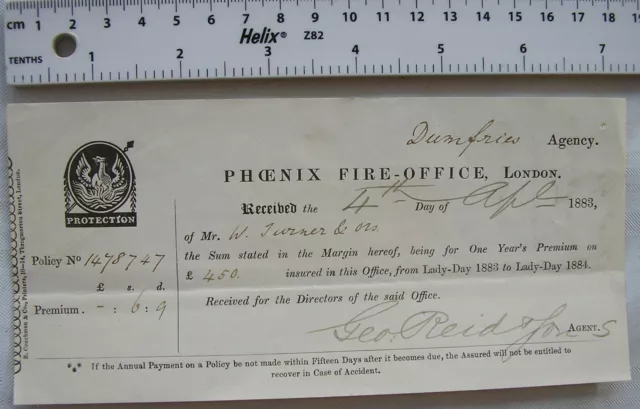 cm 1 2 3 4 5 6 7 8 9 10 11 12 13 14 15 16 17 18 19
Helix® Z82
TENTHS 1 2 3 4 5 6 7
Dumfries Agency.
PHŒNIX FIRE-OFFICE, LONDON.
PROTECTION
Received the 4th Day of Apl 1883,
of Mr. W. Turner & ors
the Sum stated in the Margin hereof, being for One Year's Premium on
£ 450. insured in this Office, from Lady-Day 1883 to Lady-Day 1884.
Received for the Directors of the said Office.
Policy No 1478747
£ s. d.
Premium. - : 6 : 9
Geo. Reid & Sons AGENT.
*** If the Annual Payment on a Policy be not made within Fifteen Days after it becomes due, the Assured will not be entitled to
recover in Case of Accident.